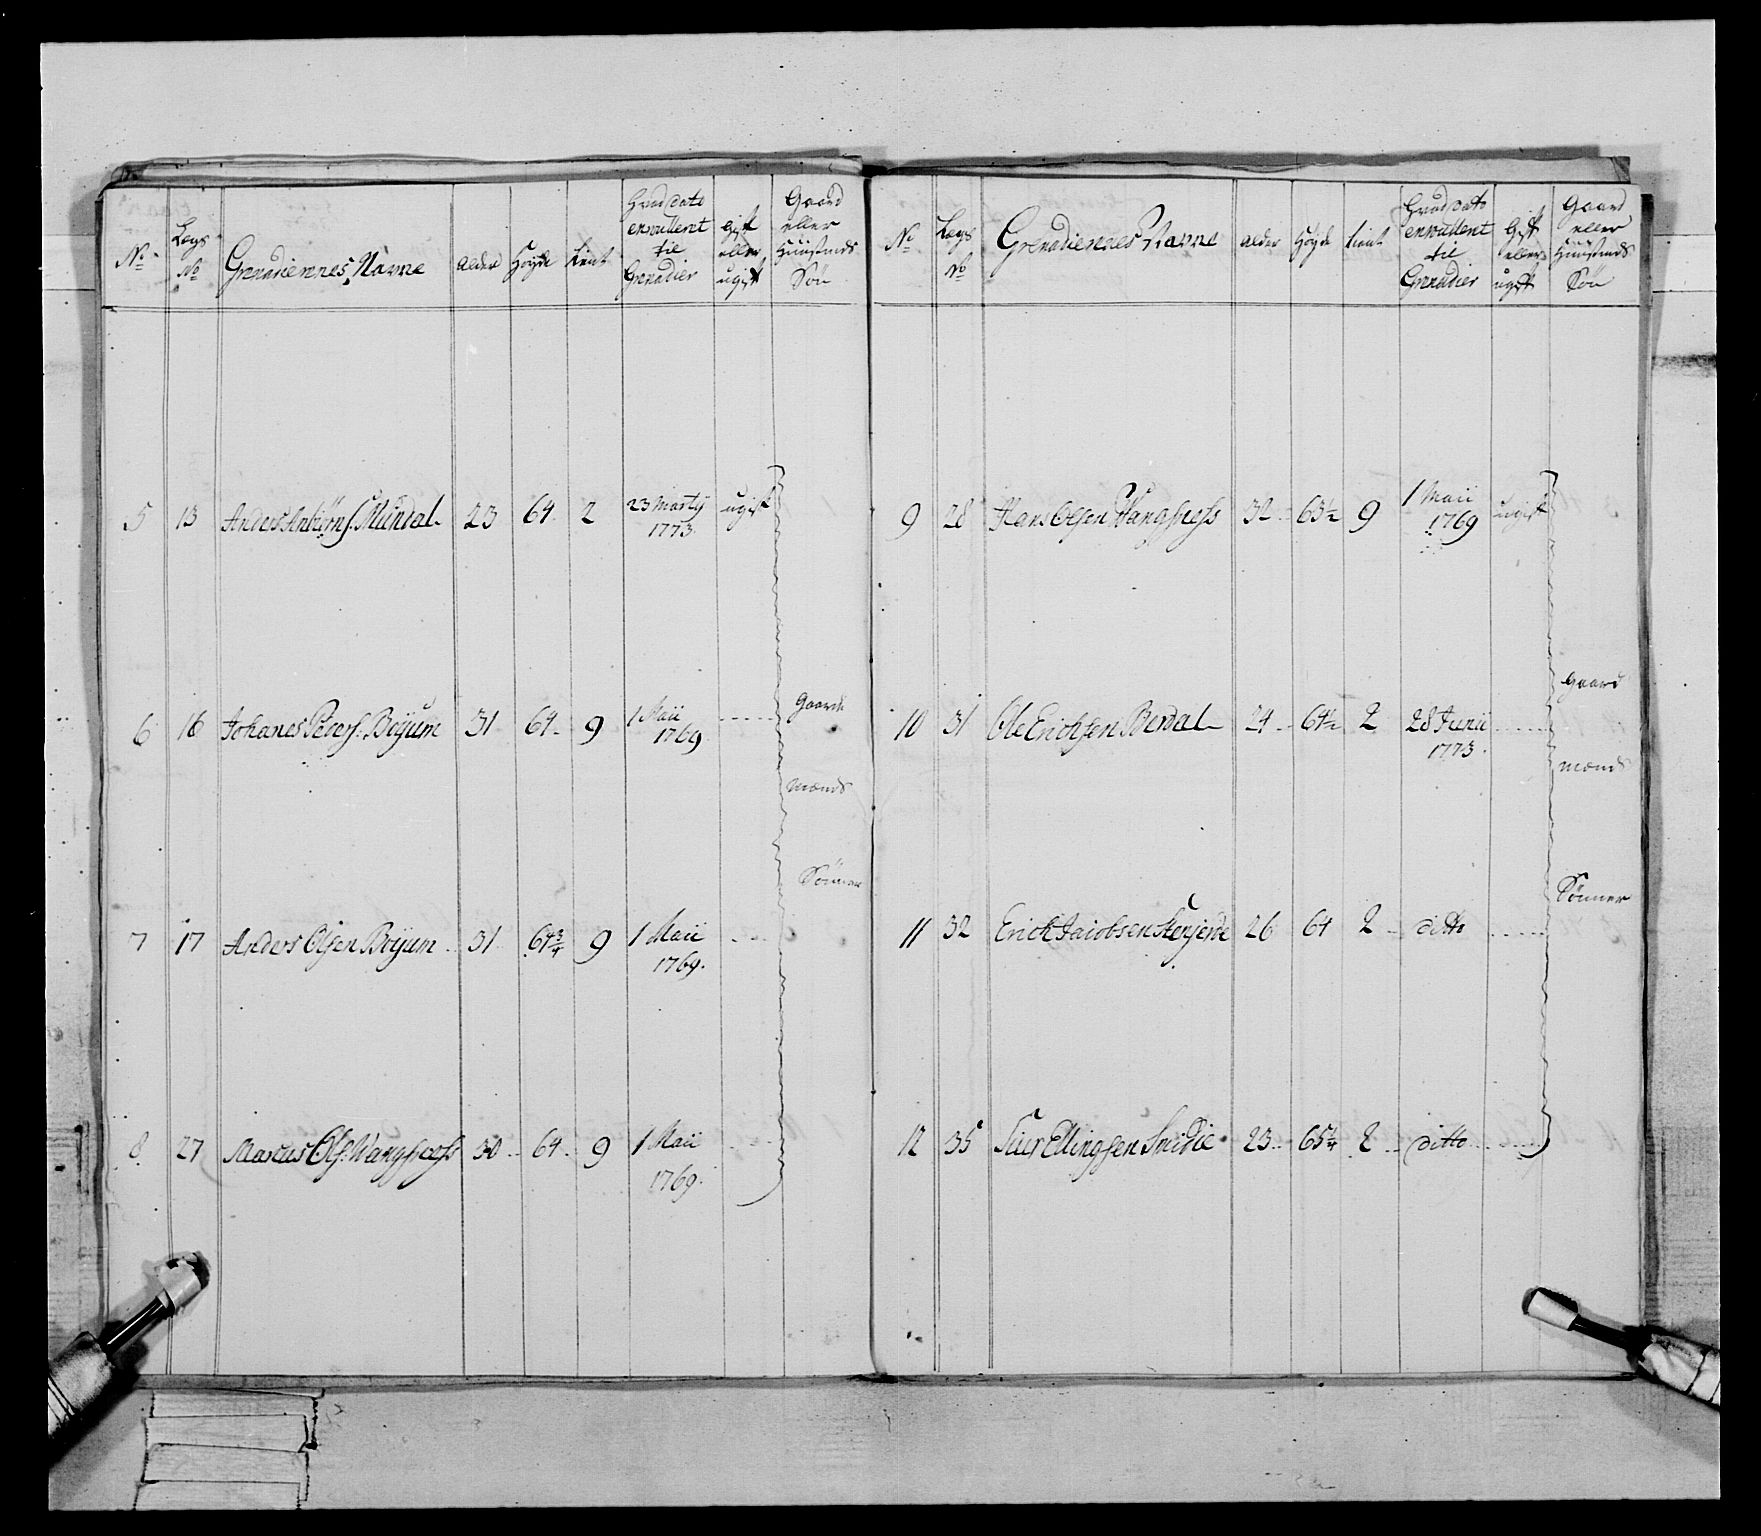 No Legs No Grenadiernes Navne Alder Høyde tient Hvad dato enroullert til Grenadier Gift eller ugift Gaard eller Huusmands Søn
5 13 Anders Anbiørns. Mundal 23 64 2 23 Marty 1773. ugift
6 16 Johanes Peders. Bøyum 31 64 9 1 Maii 1769 Gaard
mænds
Sønner
7 17 Anders Olsen Bøyum 31 64¾ 9 1 Maii 1769.
8 27 Marcus Ols. Wangsness 30 64 9 1 Maii 1769.
No Legs No Grenadiernes Navne Alder Høyde tient Hvad dato enroullert til Grenadier Gift eller ugift Gaard eller Huusmands Søn
9 28 Hans Olsen Wangsness 32 63½ 9 1 Maii 1769 ugift
Gaard
10 31 Ole Erichsen Berdal 24 64½ 2 28 Junii 1773.
mænds
Sønner
11 32 Erich Jacobsen 26 64 2 ditto
12 35 Siur Ellingsen 23 65¼ 2 ditto